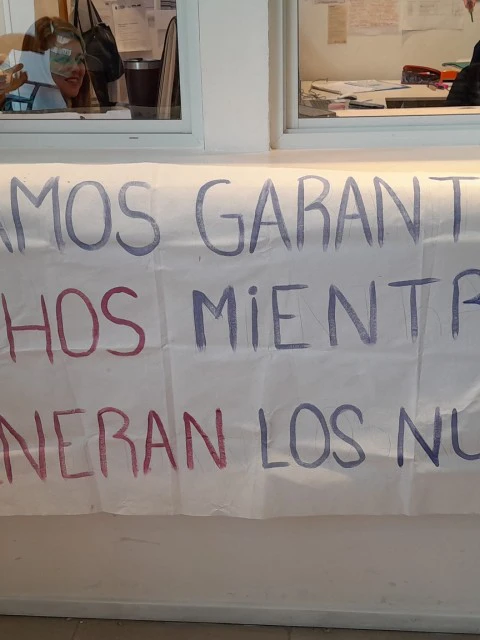 AMOS GARANT
HOS MiENTR
NERAN LOS NU